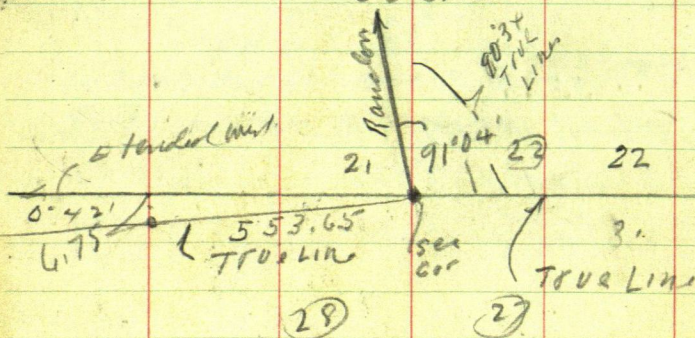 Random
90°34
TRUE
LINE
Extended West
21
91°04'
22
22
0°42'
6.75
553.65
TRUE LINE
Sec
Cor
3.
True Line
28
27